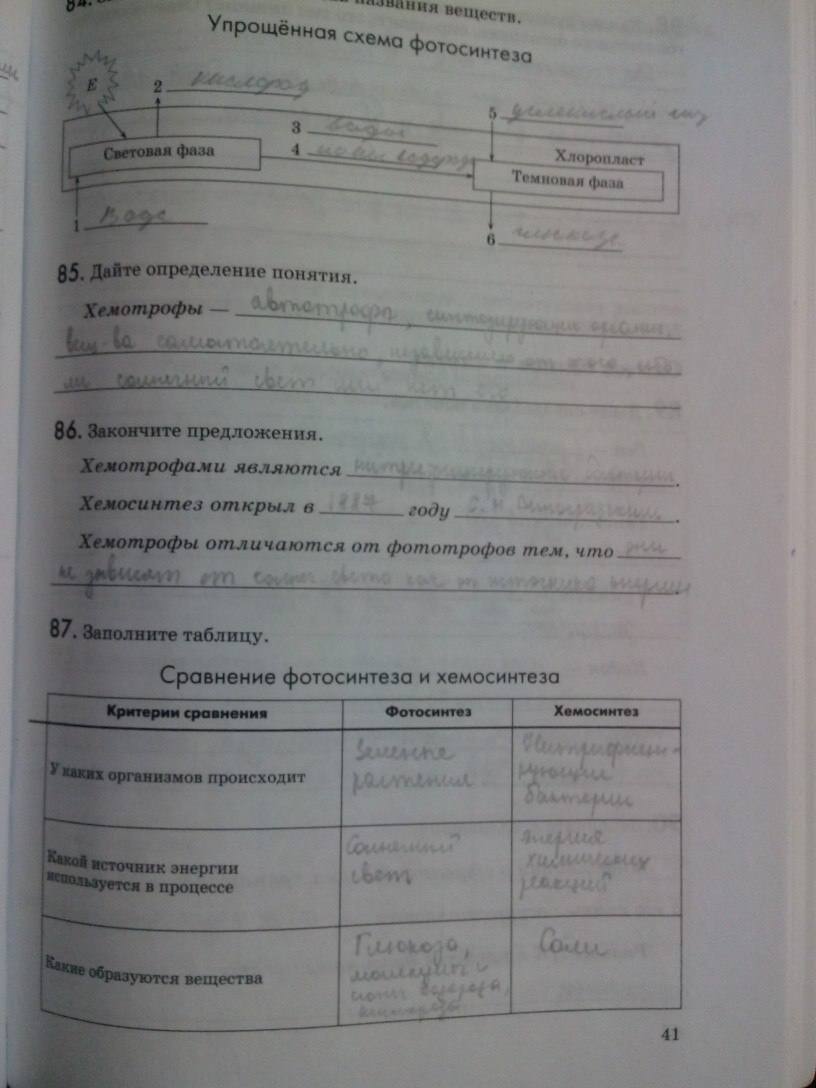 84.
названия веществ.
Упрощённая схема фотосинтеза
E
2 кислород
5 углекислый газ
3 воды
4 ионы водорода
Световая фаза
Хлоропласт
Темновая фаза
1 Вода
6 глюкоза
85. Дайте определение понятия.
Хемотрофы — автотрофы, синтезирующие органич.
вещ-ва самостоятельно, независимо от того,
ли солнечный свет или нет
86. Закончите предложения.
Хемотрофами являются нитрифицирующие бактерии.
Хемосинтез открыл в 1887 году С.Н. Виноградский.
Хемотрофы отличаются от фототрофов тем, что они
не зависят от солнеч. света как от источника энергии.
87. Заполните таблицу.
Сравнение фотосинтеза и хемосинтеза
Критерии сравнения Фотосинтез Хемосинтез
У каких организмов происходит
Зеленые
растения
Нитрифици-
рующие
бактерии
Какой источник энергии
используется в процессе
Солнечный
свет
энергия
химических
реакций
Какие образуются вещества
Глюкоза,
молекулы и
ионы водорода,
Соли
41